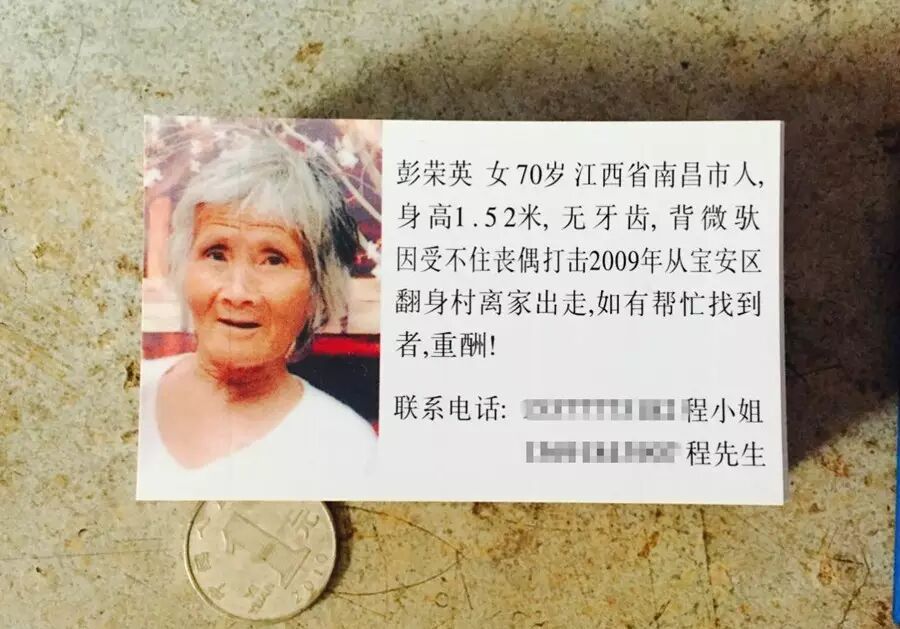 彭荣英 女 70岁 江西省南昌市人,
身高1.52米, 无牙齿, 背微驮
因受不住丧偶打击2009年从宝安区
翻身村离家出走,如有帮忙找到
者,重酬!
联系电话: 程小姐
程先生
1元
2010